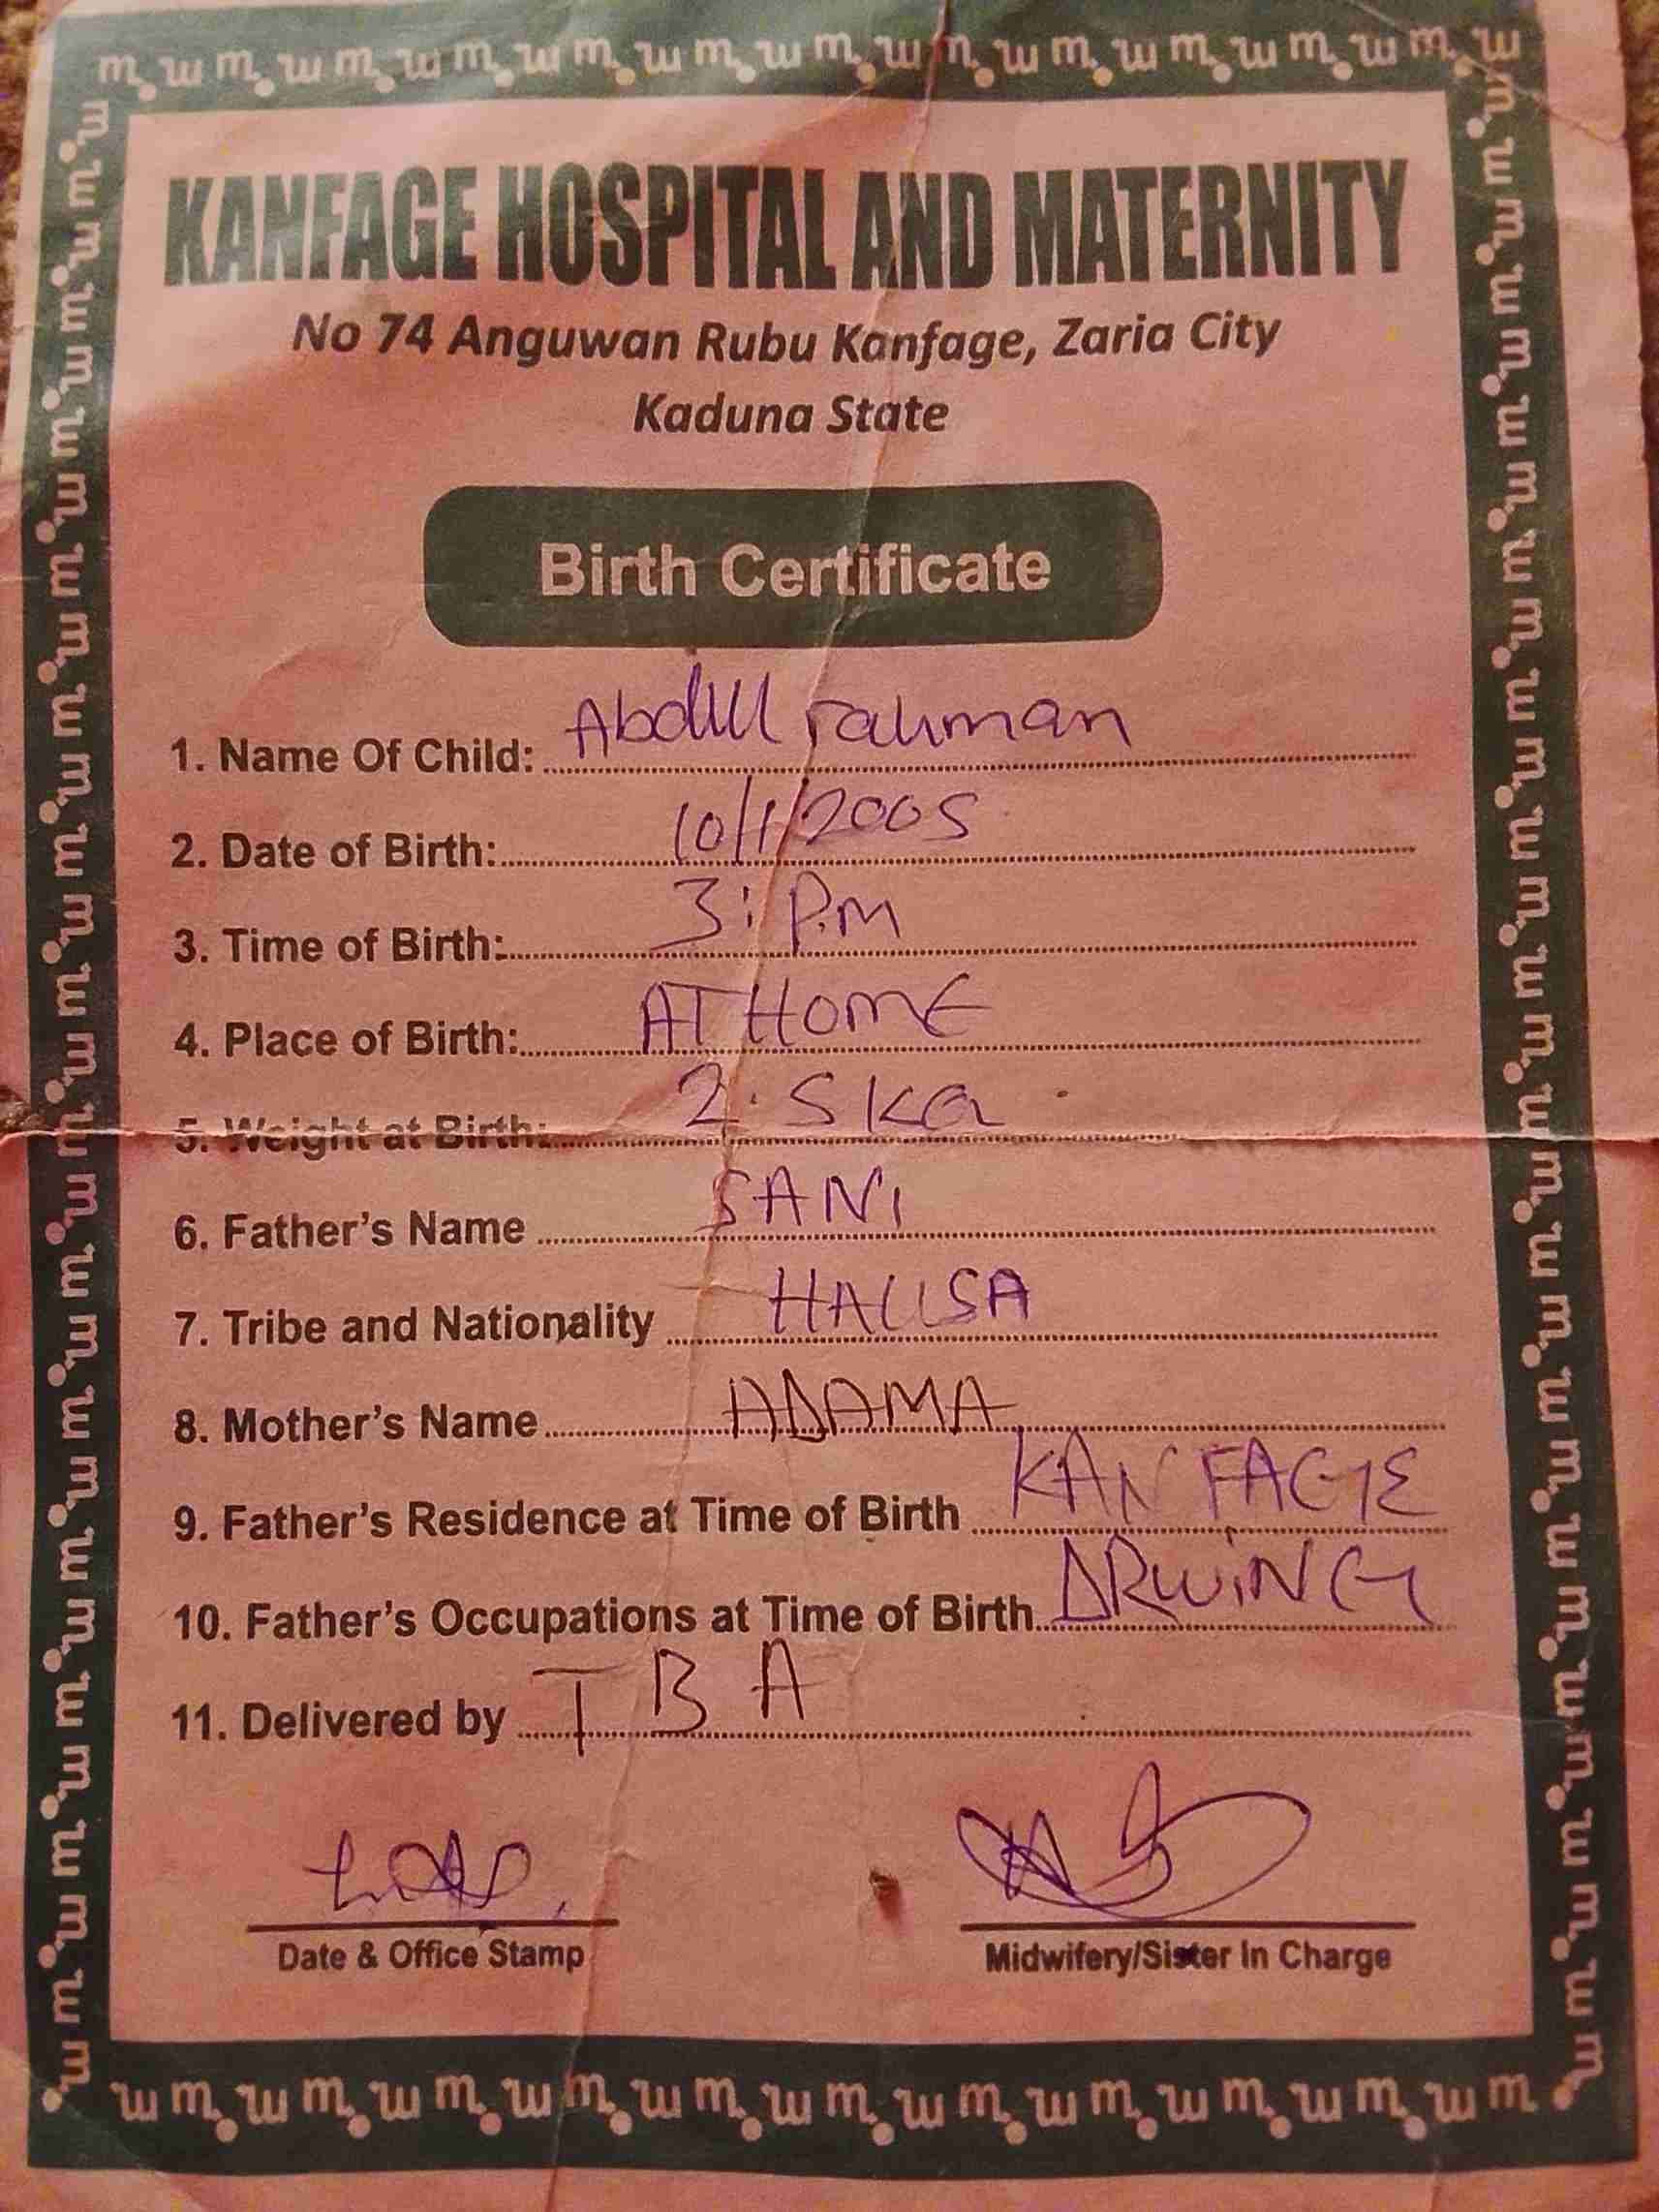 KANFAGE HOSPITAL AND MATERNITY
No 74 Anguwan Rubu Kanfage, Zaria City
Kaduna State
Birth Certificate
1. Name Of Child: Abdul rahman
2. Date of Birth: 10/1/2005
3. Time of Birth: 3: P.M
4. Place of Birth: AT HOME
5. Weight at Birth: 2.5 KG
6. Father's Name SANI
7. Tribe and Nationality HAUSA
8. Mother's Name ADAMA
9. Father's Residence at Time of Birth KANFAGE
10. Father's Occupations at Time of Birth DRWING
11. Delivered by TBA
Date & Office Stamp Midwifery/Sister In Charge